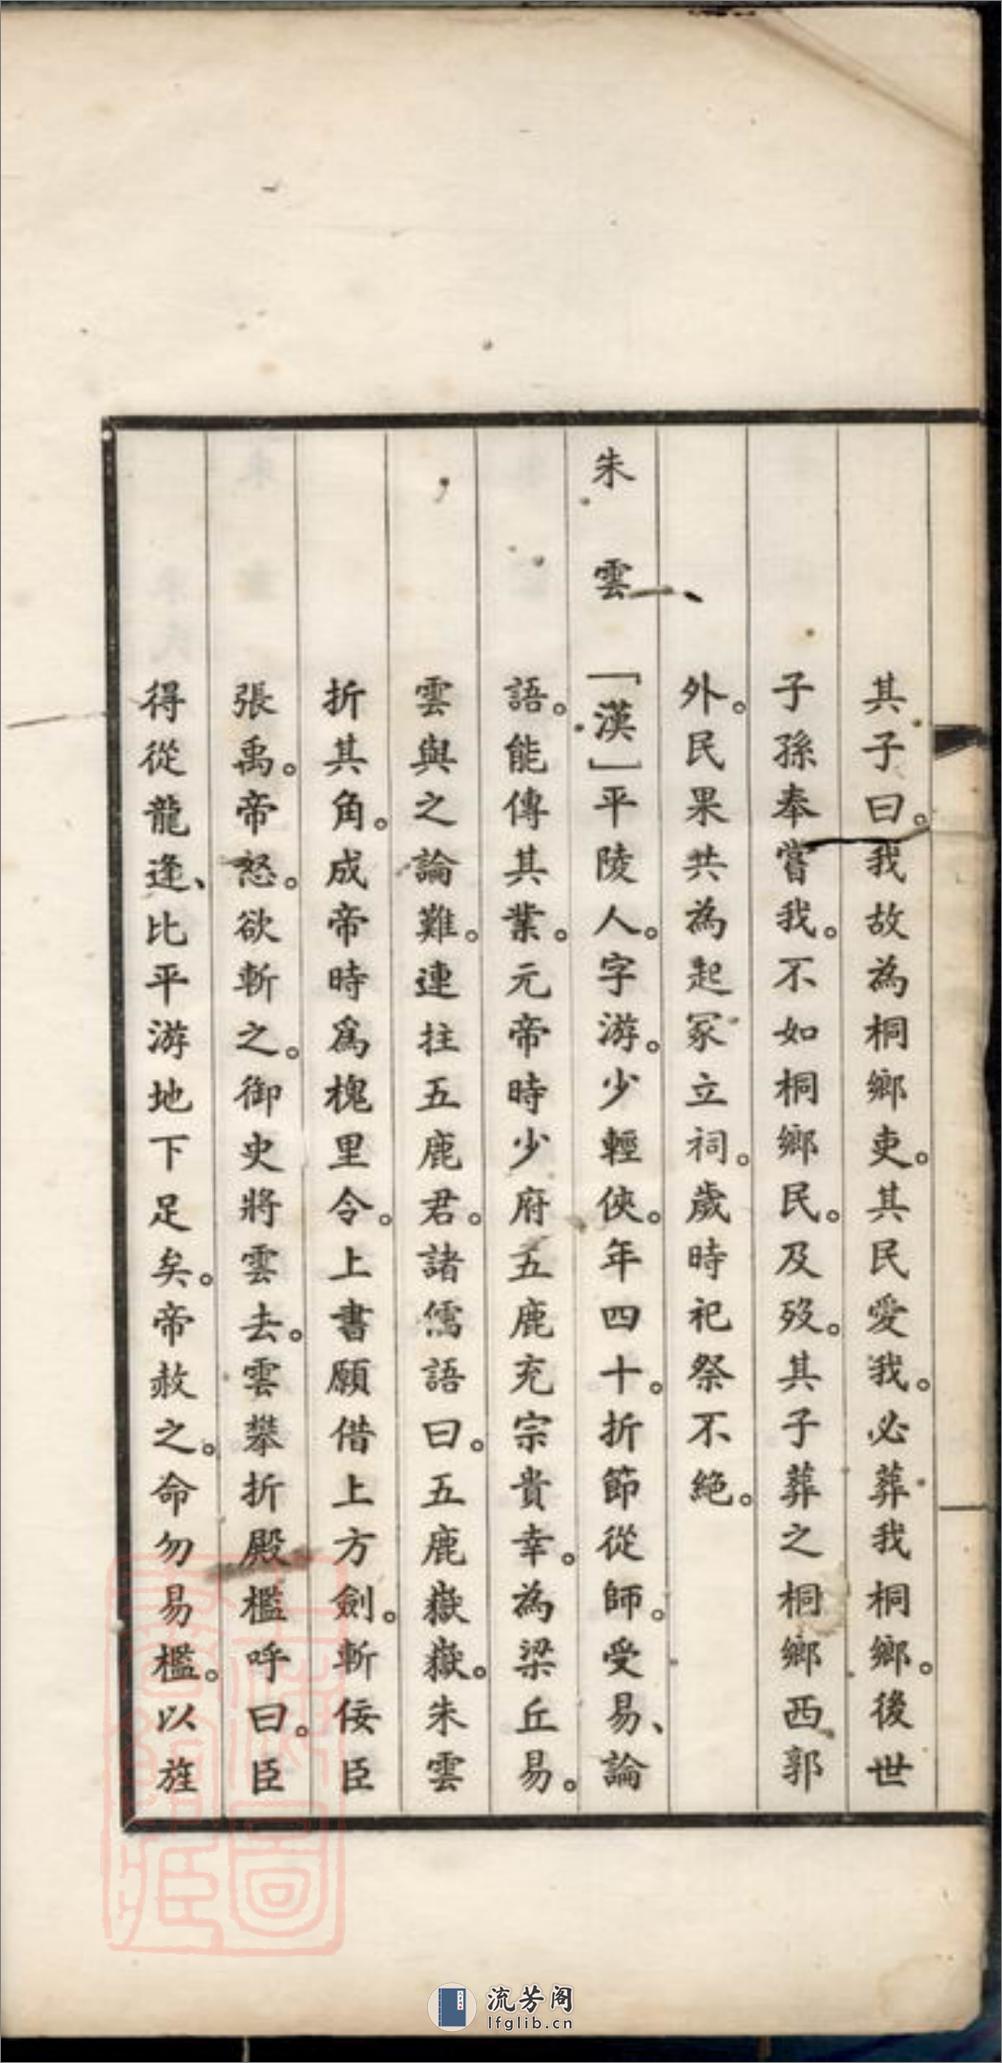 其子曰。我故為桐鄉吏。其民愛我。必葬我桐鄉。後世
子孫奉嘗我。不如桐鄉民。及歿。其子葬之桐鄉西郭
外。民果共為起冢立祠。歲時祀祭不絕。
朱雲「漢」平陵人。字游。少輕俠。年四十。折節從師。受易、論
語。能傳其業。元帝時少府五鹿充宗貴幸。為梁丘易。
雲與之論難。連拄五鹿君。諸儒語曰。五鹿嶽嶽。朱雲
折其角。成帝時爲槐里令。上書願借上方劍。斬佞臣
張禹。帝怒。欲斬之。御史將雲去。雲攀折殿檻呼曰。臣
得從龍逢、比平游地下足矣。帝赦之。命勿易檻。以旌
流芳阁
lfglib.cn